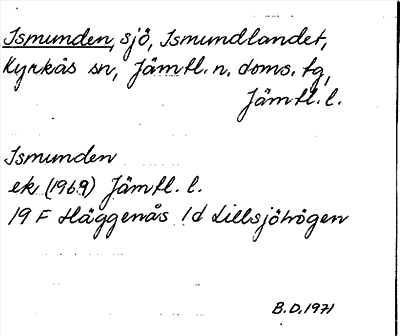 Ismunden, sjö, Ismundlandet,
Kyrkås sn, Jämtl. n. doms. tg,
Jämtl. l.
Ismunden
ek. (1969) Jämtl. l.
19 F Häggenås 1d Lillsjöhögen
B.D. 1971